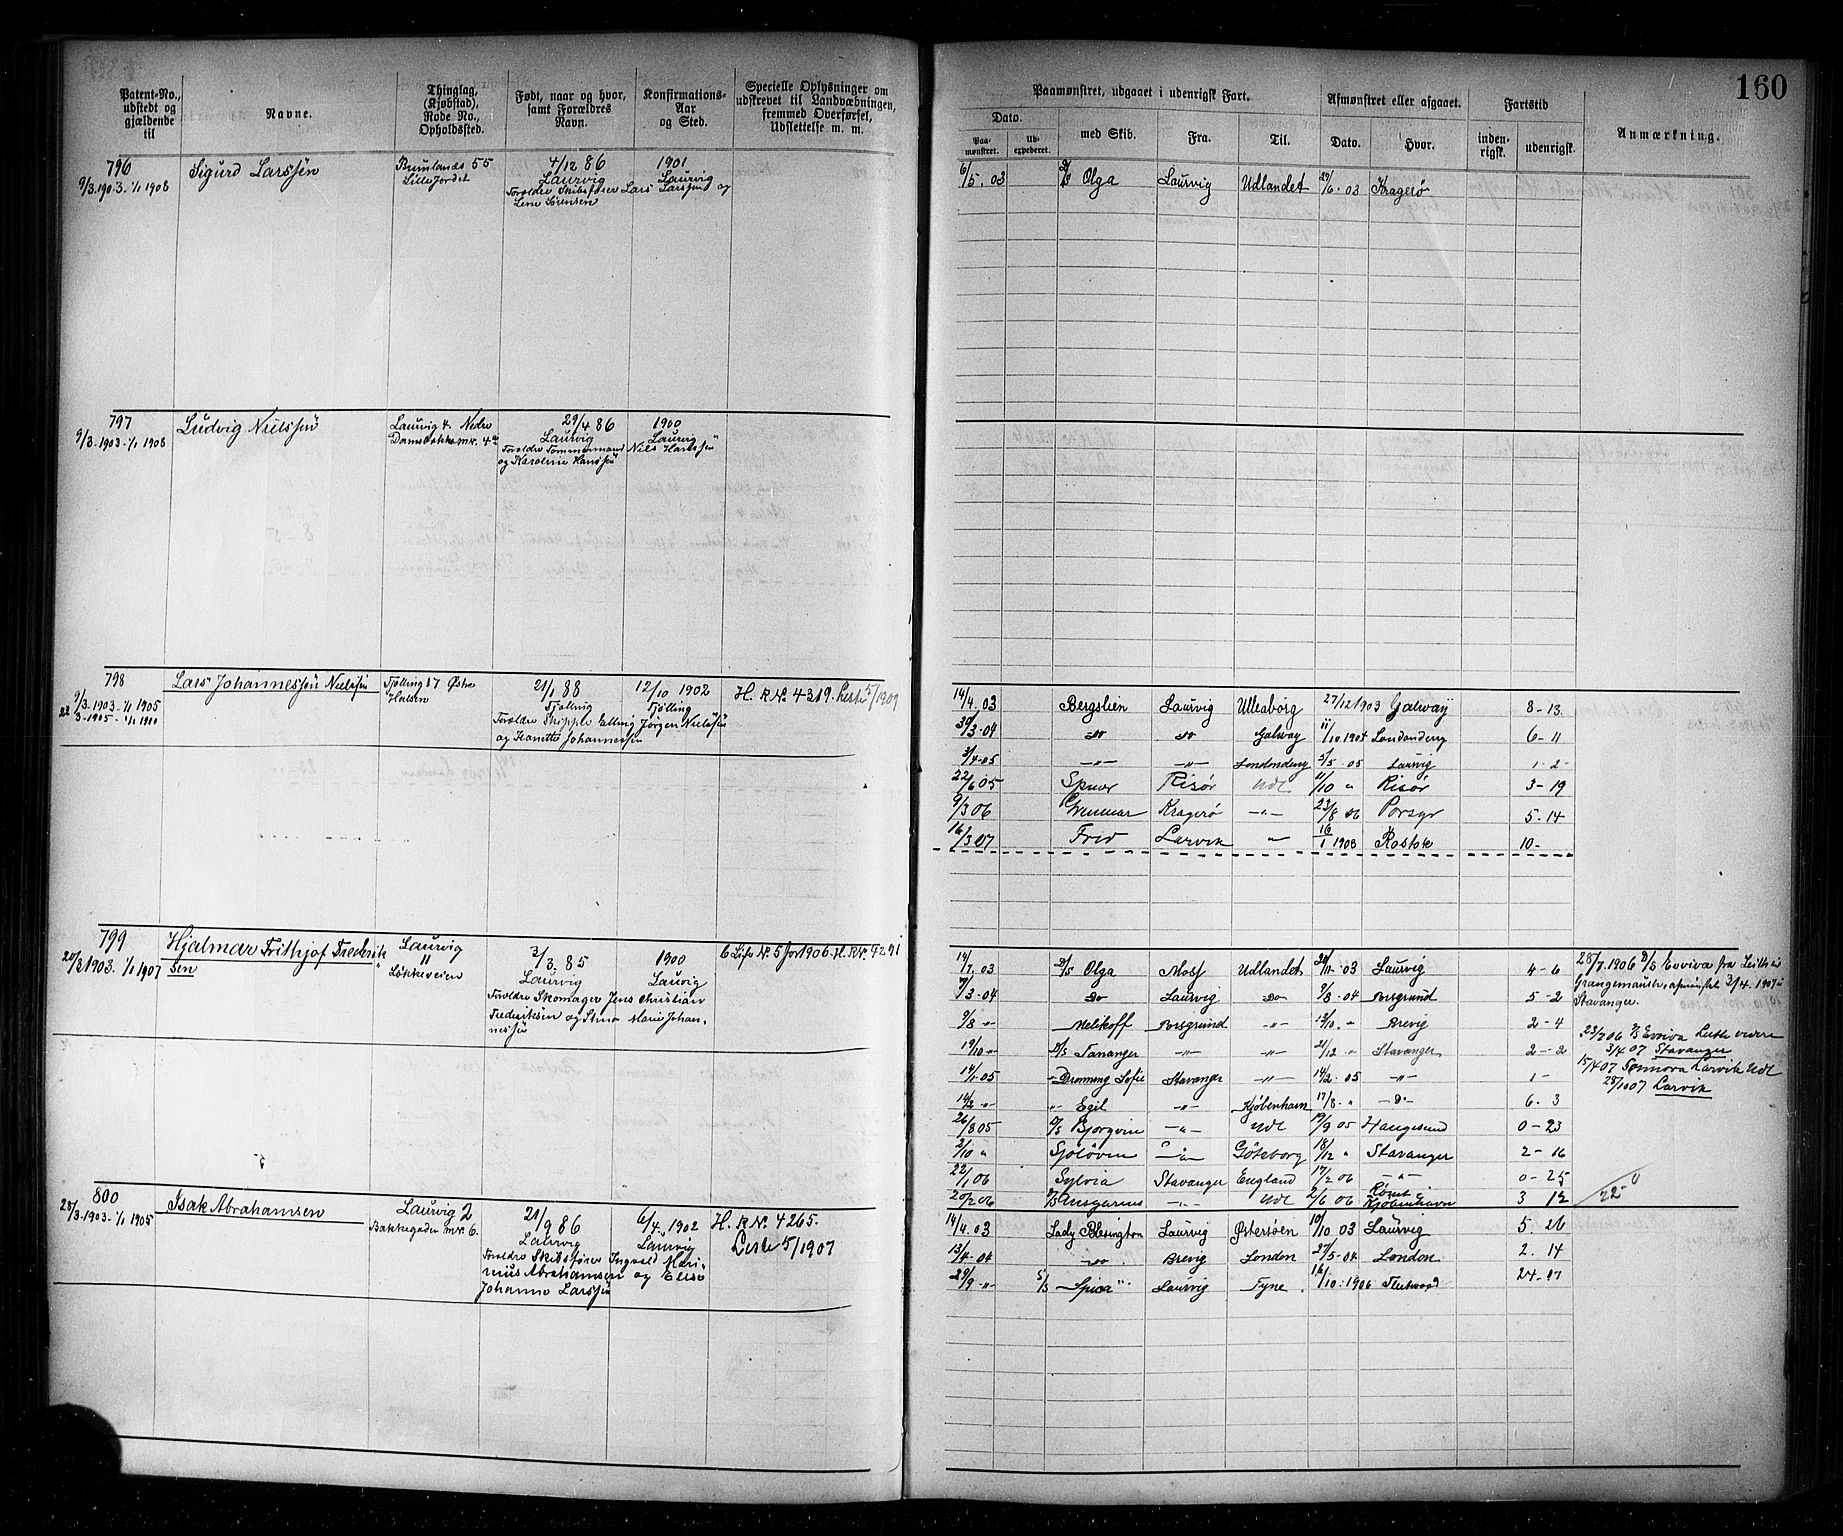 160
Patent-No., udstedt og gjældende til
Navne.
Thinglag, (Kjøbstad), Rode No., Opholdssted.
Født, naar og hvor, samt Forældres Navn.
Konfirmations-Aar og Sted.
Specielle Oplysninger om udskrevet til Landværningen, fremmed Overførsel, Udslettelse m. m.
Paamønstret, udgaaet i udenrigsk Fart.
Afmønstret eller afgaaet.
Fartstid
Anmærkning.
Dato.
Paamønstret.
Udexpederet.
med Skib.
Fra.
Til.
Dato.
Hvor.
indenrigsk.
udenrigsk.
796
9/3. 1903. 1/1 1908
Sigurd Larssen
Brumlandes 55
Lille Jordet
4/12 86
Laurvig
Forældre Skibsfører Lars Larssen og
Lene Sørensen
1901
Laurvig
6/5. 03 Olga Laurvig Udlandet 29/6. 03 Kragerø
797
9/3. 1903 - 1/1 1908
Ludvig Nielssen
Laurvig 4. Nedre
29/4 86
Laurvig
Forældre Tømmermand Niels Hanssen
og Karoline Hanssen
1900
Laurvig
798
9/3. 1903 - 1/1 1905
Lars Johannessen Nielssen
Tjølling 17 Østre
Halsen
21/1 88
Tjølling
Forældre Skipper Elling Jørgen Nielssen
og Hanette Johannessen
12/10 1902
Tjølling
H. R. No. 4319. Liste 5/1909
14/4. 03 Bergslien Laurvig Uleaborg 27/12 1903 Galway 8 - 13
30/3. 04 do do Galway 11/10 1904 Londonderry 6 - 11
3/4. 05 -„- -„- Londonderry 5/5. 05 Laurvig 1 - 2
22/6 05 Spuur Risør Udl 11/10 „ Risør 3 - 19
9/3 06 Gunnar Kragerø -„- 23/8 06 Porsgr 5 - 14
16/3 07 Frid Larvik „ 16/1 1908 Rostok 10 -
799
20/3 1903. 1/1 1907
Hjalmar Frithjof Frederik-
sen
Laurvig
11
Løkkeveien
3/3. 85
Laurvig
Forældre Skomager Jens Christian
Frederiksen og Stina Marie Johan-
nessen
1900
Laurvig
6 Liste No. 5 for 1906. H. R. No. 4291
14/7. 03 D/S Olga Moss Udlandet 30/11. 03 Laurvig 4 - 6
9/3. 04 Do Laurvig Do 9/8. 04 Porsgrund 5 - 2
9/8 „ Melikoff Porsgrund -„- 13/10. „ Brevig 2 - 4
19/10 „ D/S Tananger -„- -„- 21/12 „ Stavanger 2 - 2
14/1. 05 „ Dronning Sofie Stavanger -„- 14/2. 05 -„- 1 -
14/2 „ „ Egil -„- Kjøbenhavn 17/8. „ -D- 6. 3
26/8 05 D/S Bjorgvin -„- Udl 19/9 05 Haugesund 0 - 23
2/10 „ Sjøløven -„- Göteborg 18/12 „ Stavanger 2 - 16
22/1 06 Sylvia Stavanger England 17/2 06 -„- 0 - 25
20/2 06 D/S Ansgarius -„- Udl 2/6 06 Rømt i Kjøbenhavn 3 12
28/7. 1906 D/S Evviva fra Leith til
Grangemouth, afmønstr. 3/4. 1907 i
Stavanger.
23/7 06 D/S Evviva Leith
3/4 07 Stavanger
15/4 07 Sonnova Larvik Udl
28/10 07 Larvik
800
28/3. 1903 - 1/1 1905
Isak Abrahamsen
Laurvig 2
Bakkegaden nr. 6.
21/9 86
Laurvig
Forældre Skibsfører Ingvald Mari-
nius Abrahamsen og Elise
Johanne Larssen
6/4. 1902
Laurvig
H. R No. 4265.
Liste 5/1907
14/4. 03 Lady Blesington Laurvig Østersøen 10/10 03 Laurvig 5. 26
13/4. 04 do Brevig London 27/5. 04 London 2. 14
29/9 „ S/S „Spica" Laurvig Tyne 16/10. 1906 Fleetwood 24 - 17